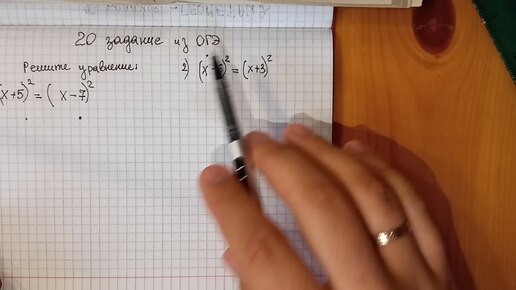 20 задание из ОГЭ
Решите уравнение:
x+5)² = (x-7)²
2) (x-5)² = (x+3)²